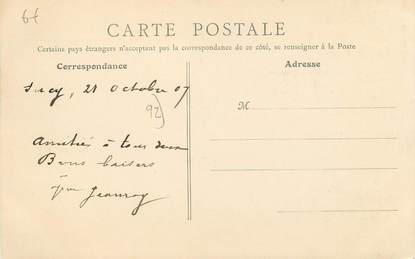 6t
CARTE POSTALE
Certains pays étrangers n'acceptant pas la correspondance de ce côté, se renseigner à la Poste
Correspondance
Adresse
Sucy, 21 Octobre 07
92)
M
Amitiés à tous deux
Bons baisers